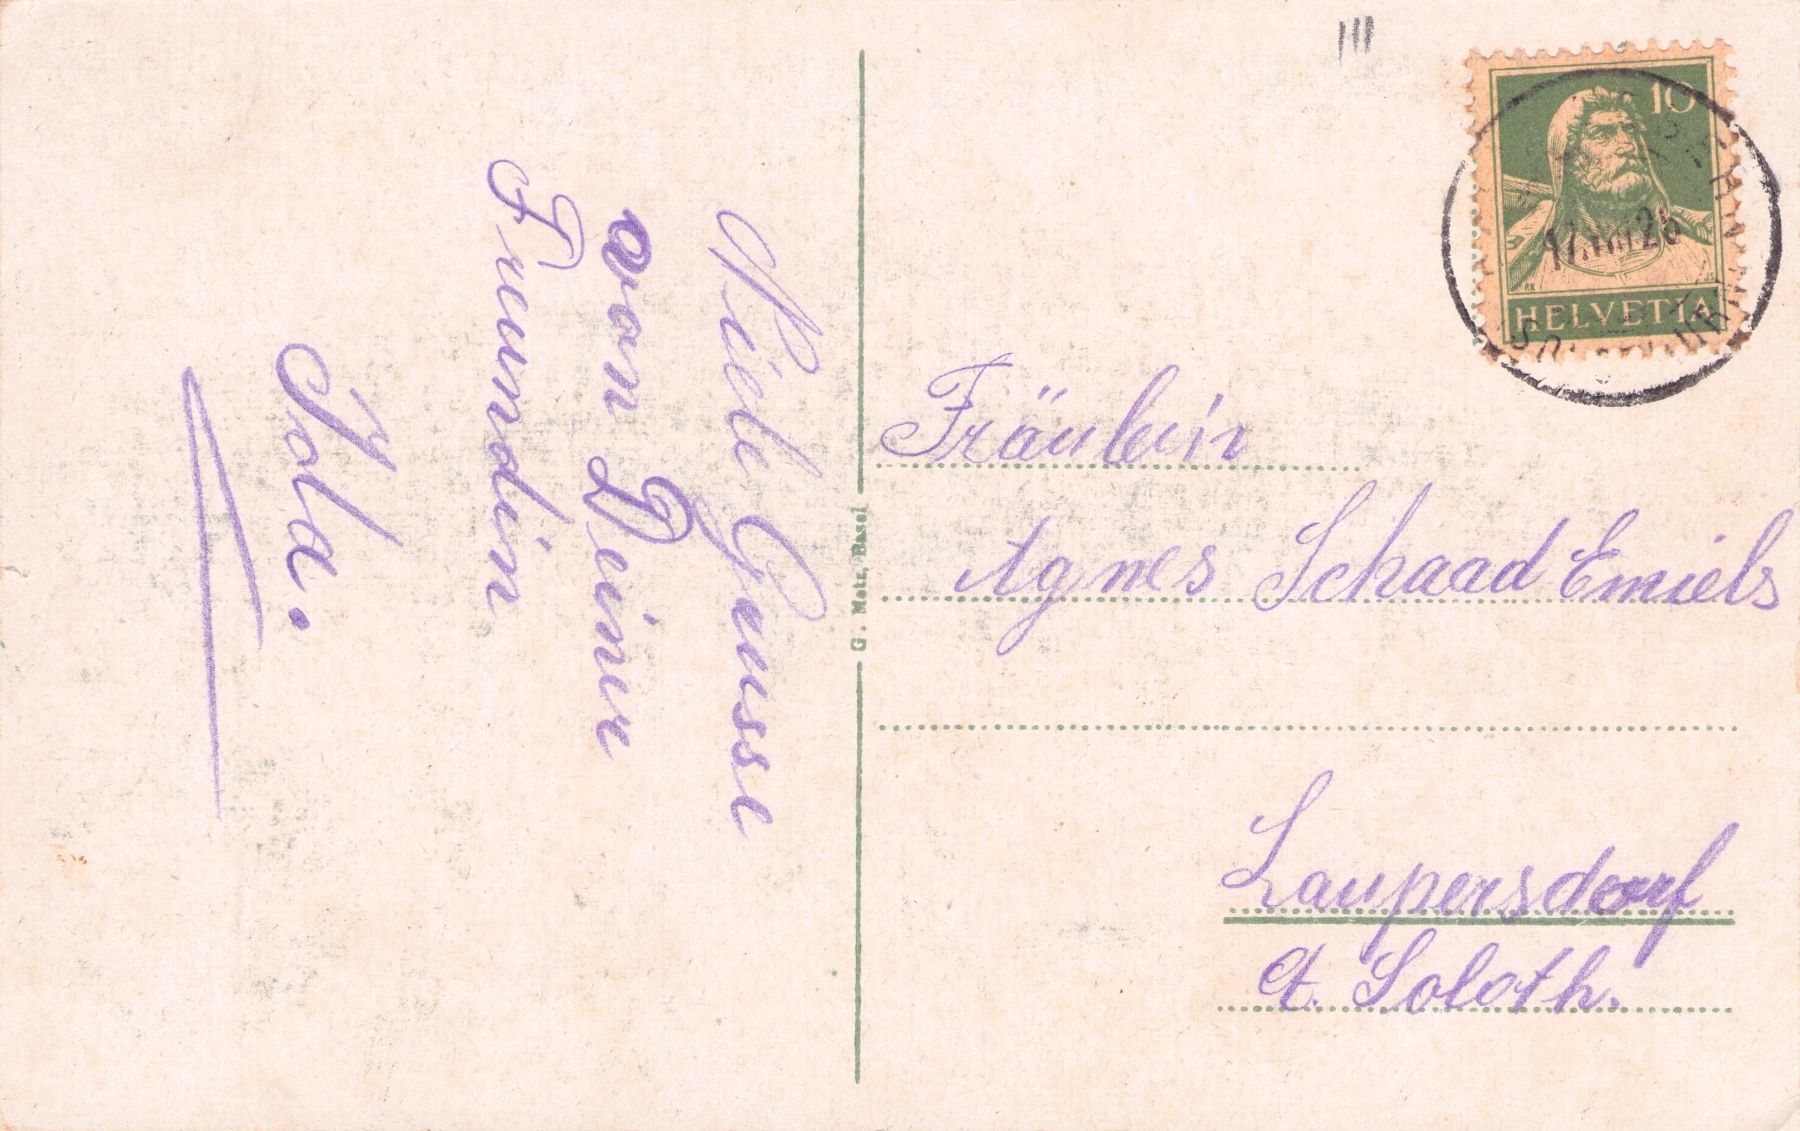 Viele Grüsse
von Deiner
Freundin
Ida.
G. Metz, Basel
10
HELVETIA
17.VIII.26
Fräulein
Agnes Schaad Emiels
Laupersdorf
Ct. Soloth.